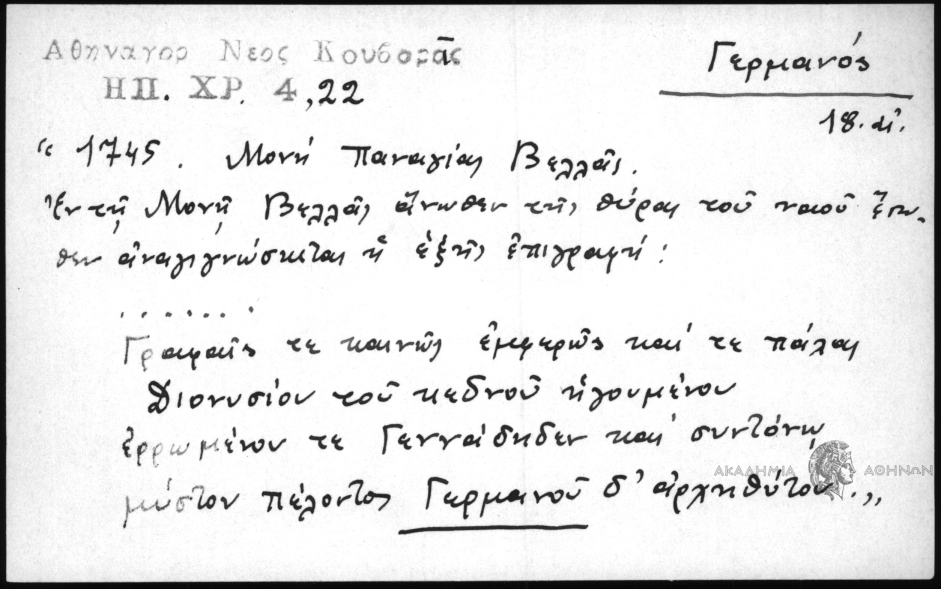 Αθηναγορ Νεος Κουβαρᾶς
ΗΠ. ΧΡ. 4, 22
Γερμανός
18. αἰ.
“ 1745. Μονή Παναγίας Βελλᾶς.
Ἐν τῇ Μονῇ Βελλᾶς ἄνωθεν τῆς θύρας τοῦ ναοῦ ἔσω-
θεν ἀναγιγνώσκεται ἡ ἑξῆς ἐπιγραφή:
. . . . . . .
Γραφαῖς τε καινῶς ἐμφερῶς καί τε πάλαι
Διονυσίου τοῦ κεδνοῦ ἡγουμένου
ἐρρωμένου τε Γενναδηδεν καί συντόνῳ
μύστου πέλοντος Γερμανοῦ δ’ ἀρχιθύτου.,,
ΑΚΑΔΗΜΙΑ ΑΘΗΝΩΝ